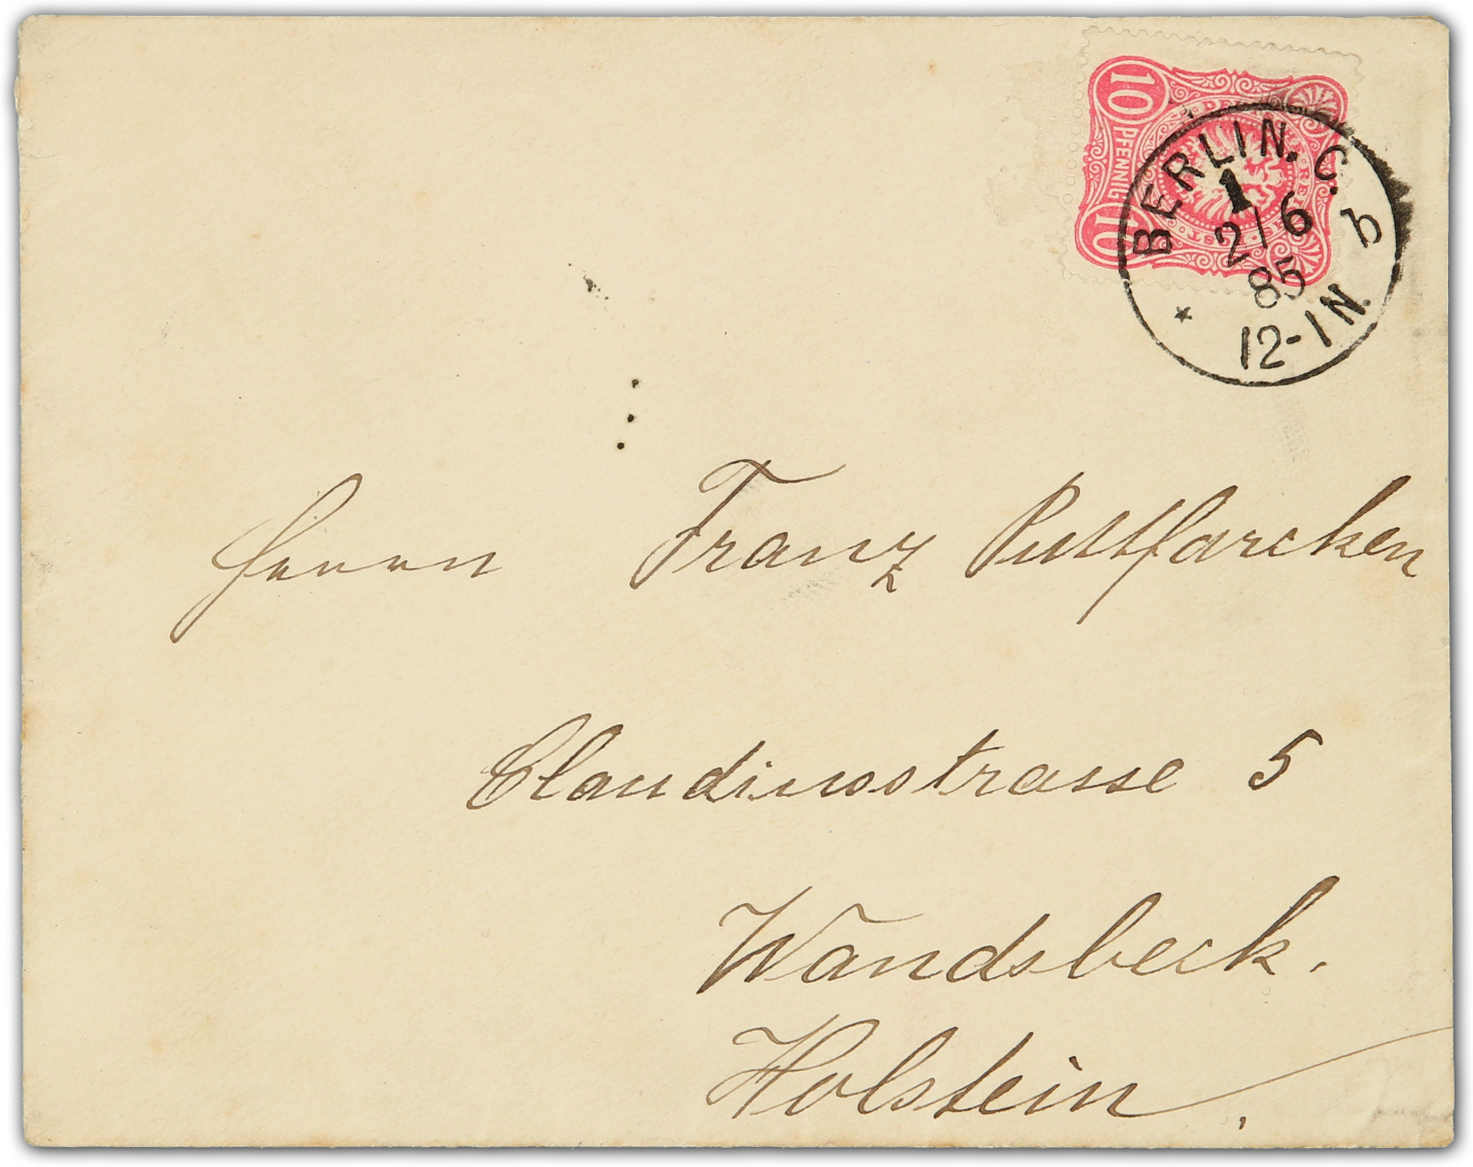 10 PFENNIG 10
BERLIN. C.
1
2 | 6
85
b
12-1 N.
Herrn Franz Puttfarcken
Claudiusstrasse 5
Wandsbeck.
Holstein.